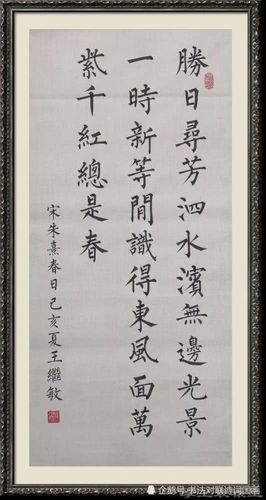 勝日尋芳泗水濱無邊光景
一時新等閒識得東風面萬
紫千紅總是春
宋朱熹春日己亥夏王繼敏
企鹅号 书法对联诗词